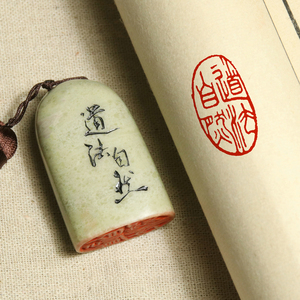 道法
自然
道法
自然